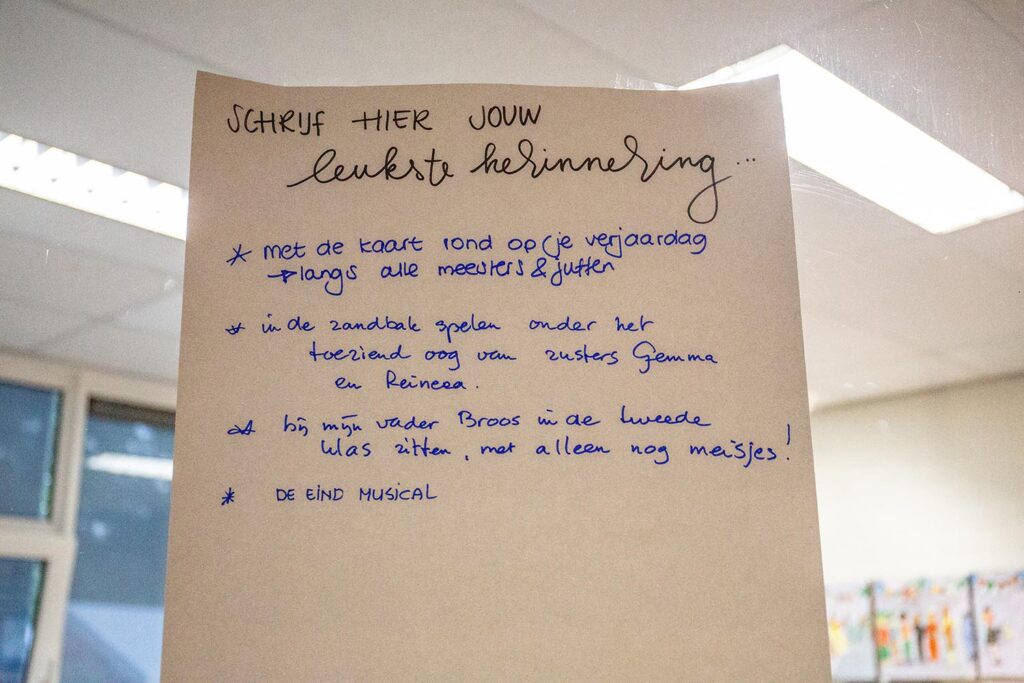 SCHRIJF HIER JOUW
leukste herinnering...
* met de kaart rond op je verjaardag
→ langs alle meesters & juffen
* in de zandbak spelen onder het
toeziend oog van zusters Gemma
en
* bij mijn vader Broos in de tweede
klas zitten, met alleen nog meisjes!
* DE EIND MUSICAL